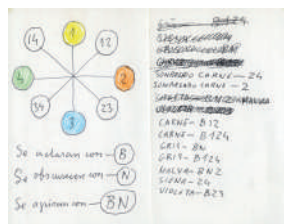 1
14
12
4
2
34
23
3
Se aclaran con - B
Se obscurecen con - N
Se agrisan con - BN
SONROSADO CARNE - 24
SONROSADO CARNE - 2
CARNE - B12
CARNE - B124
GRIS - BN
GRIS - B124
MALVA - BN2
SIENA - 24
VIOLETA - B23